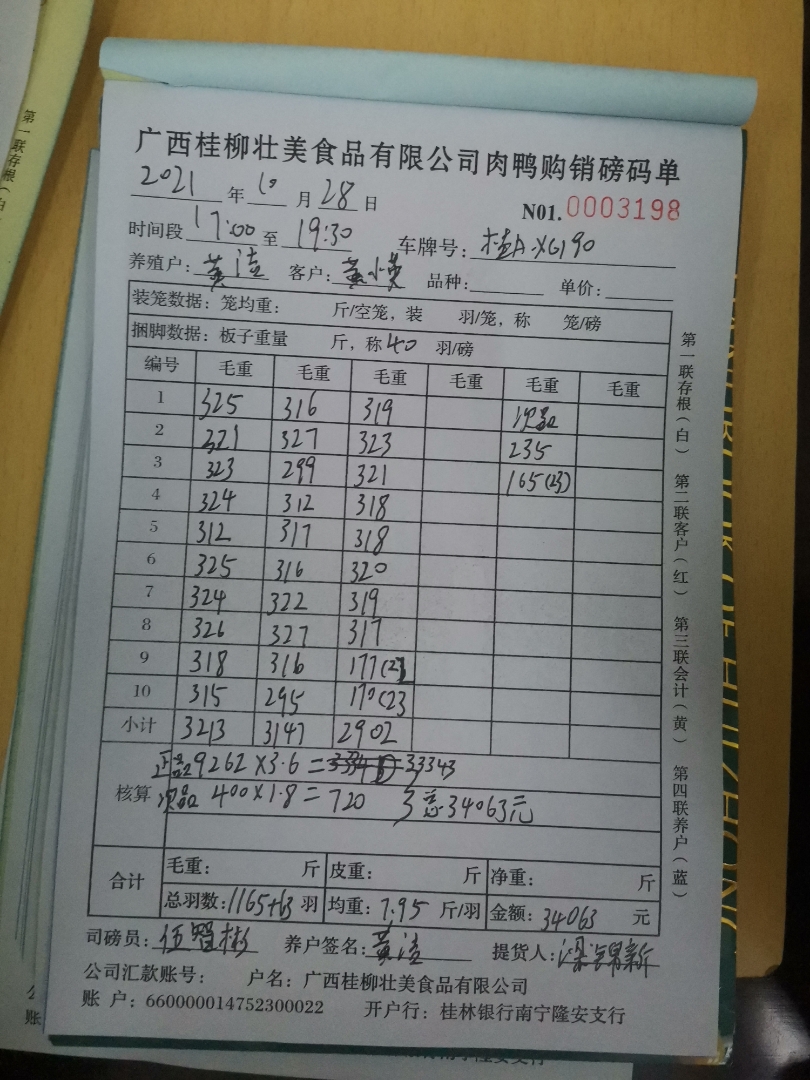 第一联存根(白
广西桂柳壮美食品有限公司肉鸭购销磅码单
2021年10月28日
N01.0003198
时间段17:00至19:30 车牌号:桂A·XG190
养殖户:黄 客户:黄小 品种: 单价:
装笼数据:笼均重: 斤/空笼,装 羽/笼,称 笼/磅
捆脚数据:板子重量 斤,称40羽/磅
编号 毛重 毛重 毛重 毛重 毛重 毛重
1 325 316 319 次品
2 321 327 323 235
3 323 299 321 165(23)
4 324 312 318
5 312 317 318
6 325 316 320
7 324 322 319
8 326 327 317
9 318 316 177(2
10 315 295 170(23
小计 3213 3147 2902
核算
正品9262×3.6=33343
次品 400×1.8=720 总34063元
合计
毛重: 斤 皮重: 斤 净重: 斤
总羽数:1165+63羽 均重:7.95斤/羽 金额:34063元
司磅员:伍 彬 养户签名:黄 提货人:梁锦新
公司汇款账号: 户名:广西桂柳壮美食品有限公司
账 户:660000014752300022 开户行:桂林银行南宁隆安支行
第一联存根(白) 第二联客户(红) 第三联会计(黄) 第四联养户(蓝)